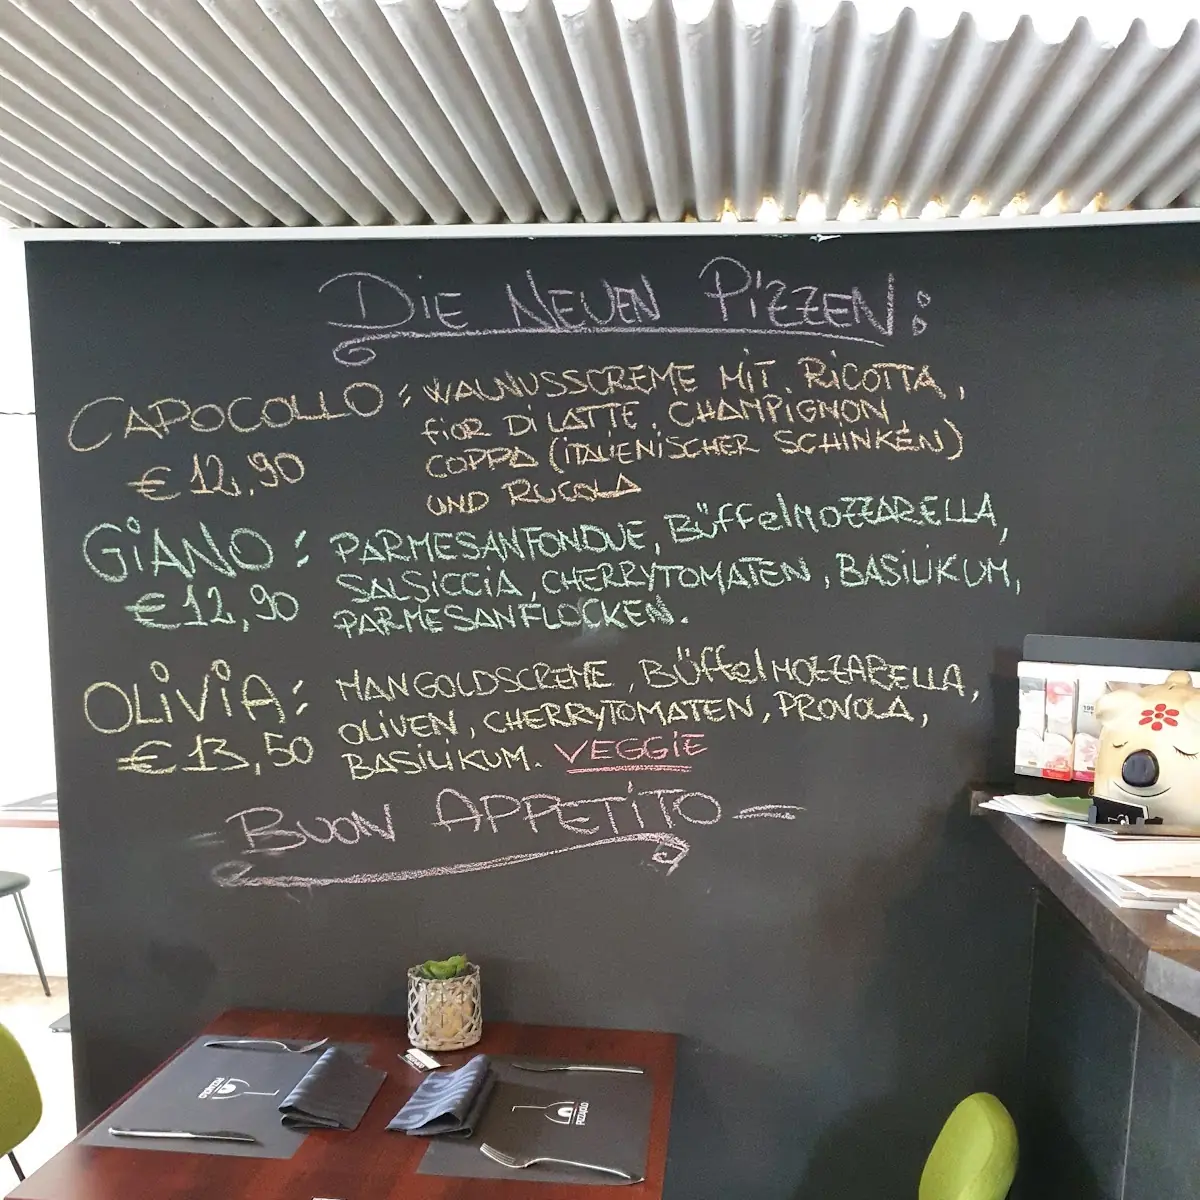 Die Neuen Pizzen:
CAPOCOLLO: WALNUSSCREME MIT RICOTTA,
FIOR DI LATTE, CHAMPIGNON,
COPPA (ITALIENISCHER SCHINKEN)
€ 12,90
UND RUCOLA
GIANO: PARMESANFONDUE, BüffelMOZZARELLA,
SALSICCIA, CHERRYTOMATEN, BASILIKUM,
€ 12,90
PARMESANFLOCKEN.
OLIVIA: MANGOLDSCREME, BüffelMOZZARELLA,
OLIVEN, CHERRYTOMATEN, PROVOLA,
€ 13,50
BASILIKUM. VEGGIE
BUON APPETITO